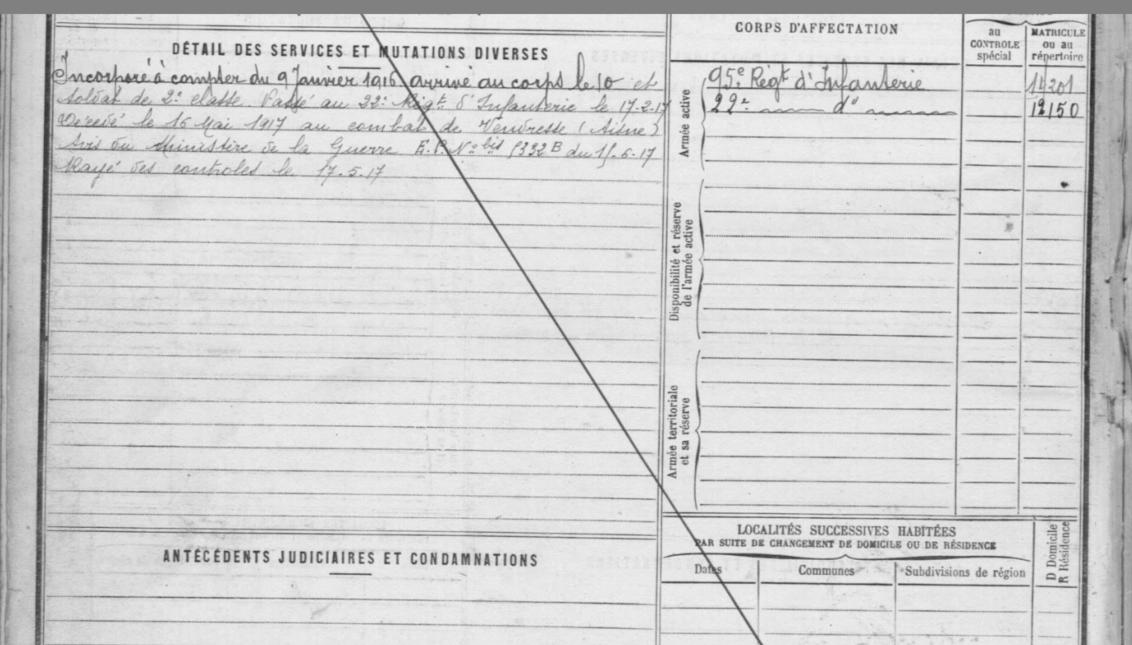 DÉTAIL DES SERVICES ET MUTATIONS DIVERSES
Incorporé à compter du 9 Janvier 1916 arrivé au corps le 10 et
soldat de 2e classe. Passé au 22e Régt d'Infanterie le 17-2-17
Décédé le 16 Mai 1917 au combat de Vendresse (Aisne)
Avis du Ministère de la Guerre E.C. No bis du 15-6-17
Rayé des controles le 17-5-17
CORPS D'AFFECTATION
au
CONTROLE
spécial
MATRICULE
ou au
répertoire
Armée active
95e Régt d'Infanterie
14201
22e d°
12150
Disponibilité et réserve
de l'armée active
Armée territoriale
et sa réserve
LOCALITÉS SUCCESSIVES HABITÉES
PAR SUITE DE CHANGEMENT DE DOMICILE OU DE RÉSIDENCE
Dates
Communes
Subdivisions de région
D Domicile
R Résidence
ANTÉCÉDENTS JUDICIAIRES ET CONDAMNATIONS